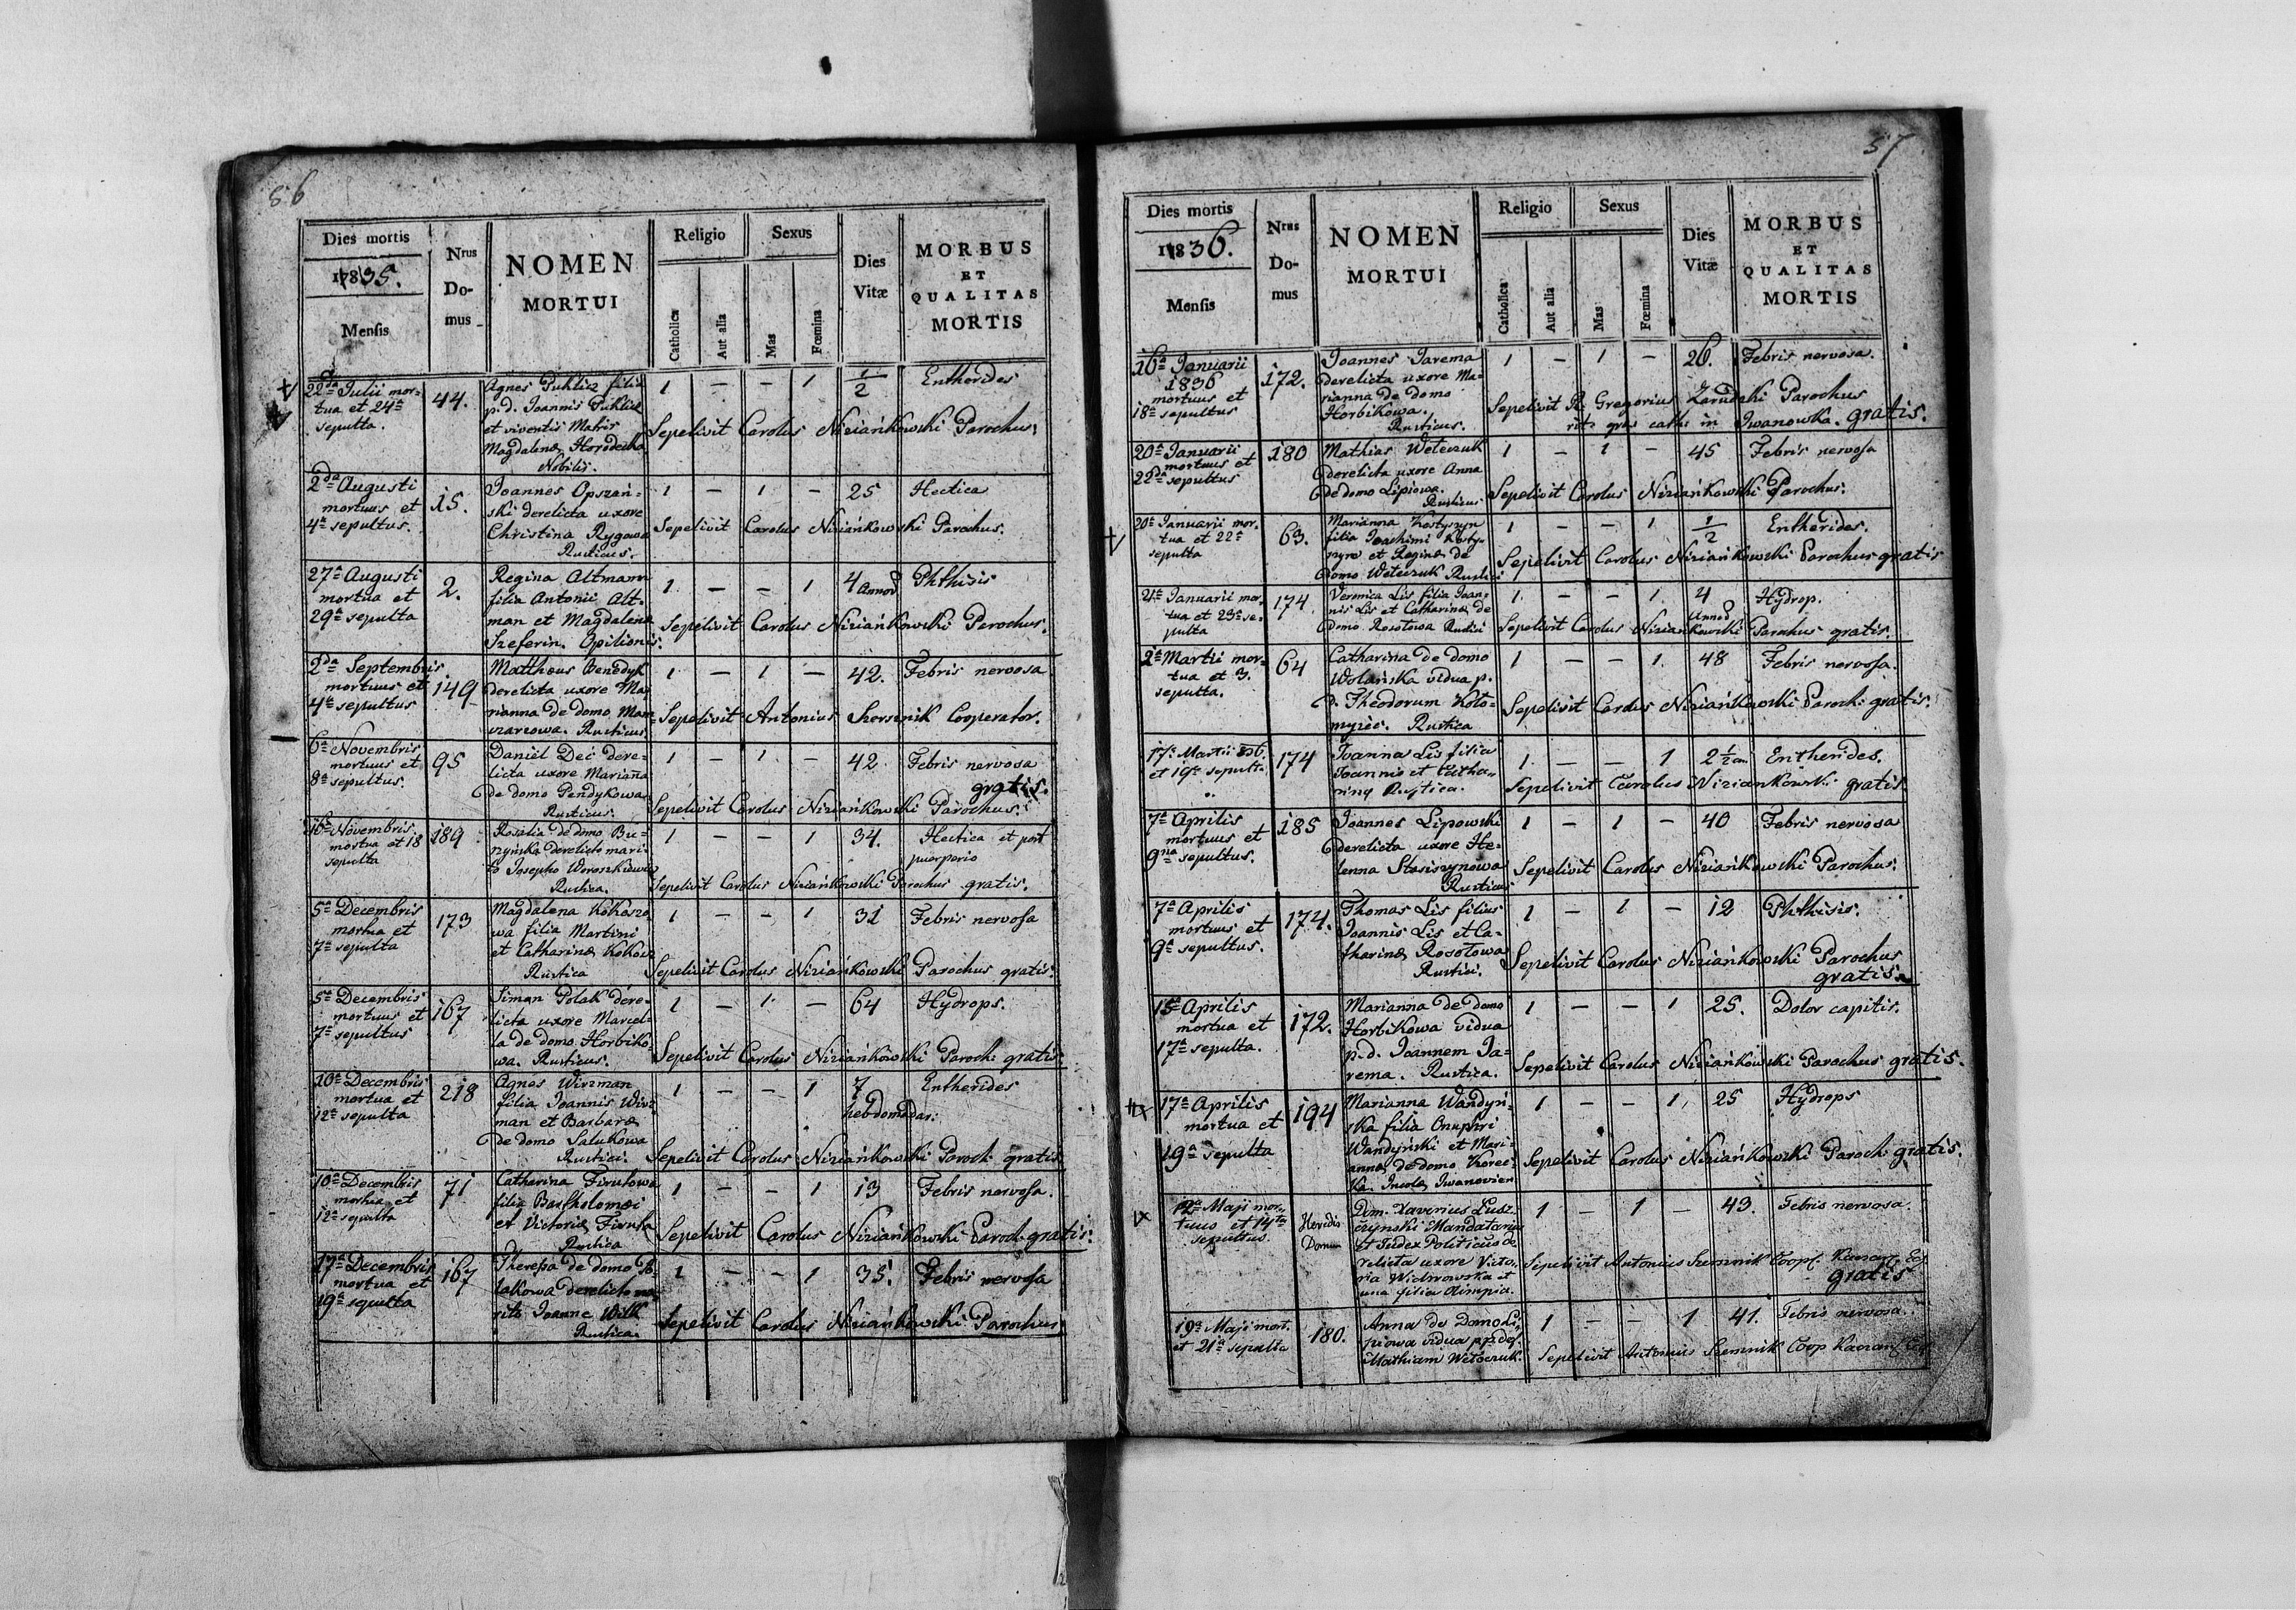 56
Dies mortis
1835.
Mensis
Nrus
Do-
mus
NOMEN
MORTUI
Religio
Catholica
Aut alia
Sexus
Mas
Fœmina
Dies
Vitæ
MORBUS
ET
QUALITAS
MORTIS
22da Julii mor-
tua et 24a
sepulta.
44.
Agnes Puklicz filia
p.d. Joannis Puklicz
et viventis Matris
Magdalena Horodecka
Nobilis.
1 — — 1 1/2 Entherides
Sepelivit Carolus Niziańkowski Parochus
2da Augusti
mortuus et
4a sepultus.
15.
Joannes Opszań-
ski derelicta uxore
Christina Rygowa
Rusticus.
1 — 1 — 25 Hectica
Sepelivit Carolus Niziańkowski Parochus.
27a Augusti
mortua et
29a sepulta
2.
Regina Altmann
filia Antonii Alt-
man et Magdalena
Szeferin. Opilionis.
1 — — 1 4 Annor Phthisis
Sepelivit Carolus Niziańkowski Parochus.
2da Septembris
mortuus et
4a sepultus
149
Mattheus Benedyk
derelicta uxore Ma-
rianna de domo
Rusticus
1 — 1 — 42. Febris nervosa
Sepelivit Antonius Cooperator.
6a Novembris
mortuus et
8a sepultus.
95
Daniel Deć dere-
licta uxore Marianna
de domo Pendykowa
Rusticus.
1 — 1 — 42 Febris nervosa
gratis.
Sepelivit Carolus Niziańkowski Parochus.
16a Novembris
mortua et 18
sepulta
189
Rosalia de domo Bu-
rzyńska derelicto mari-
to Josepho
Rustica.
1 — — 1 34. Hectica et post
puerperio
Sepelivit Carolus Niziańkowski Parochus gratis.
5a Decembris
mortua et
7a sepulta
173
Magdalena Kokoszo
wa filia Martini
et Catharina Kokosz
Rustica
1 — — 1 31 Febris nervosa
Sepelivit Carolus Niziańkowski Parochus gratis.
5a Decembris
mortuus et
7a sepultus
167
Simon Polak dere-
licta uxore Marcel-
la de domo Horbiko-
wa. Rusticus.
1 — 1 — 64 Hydrops.
Sepelivit Carolus Niziańkowski Paroch gratis
10a Decembris
mortua et
12a sepulta
218
Agnes Wirzman
filia Joannis Wirz
man et Barbara
de domo Salukowa
Rustici.
1 — — 1 7 Entherides
hebdomadar:
Sepelivit Carolus Niziańkowski Paroch gratis
10a Decembris
mortua et
12a sepulta
71
Catharina Firutowa
filia Bartholomæi
et Victoria Firuta
Rustica
1 — — 1 13 Febris nervosa.
Sepelivit Carolus Niziańkowski Paroch gratis.
17a Decembris
mortua et
19a sepulta
167
Theresa de domo Po-
lakowa derelicto ma-
rito Joanne Wilk
Rustica.
1 — — 1 35. Febris nervosa
Sepelivit Carolus Niziańkowski Parochus
57
Dies mortis
1836.
Mensis
Nrus
Do-
mus
NOMEN
MORTUI
Religio
Catholica
Aut alia
Sexus
Mas
Fœmina
Dies
Vitæ
MORBUS
ET
QUALITAS
MORTIS
16a Januarii
1836
mortuus et
18a sepultus
172.
Joannes Jarema
derelicta uxore Ma-
rianna de domo
Horbikowa.
Rusticus.
1 — 1 — 26. Febris nervosa.
Sepelivit R. Gregorius Zarudzki Parochus
rit. græc cath: in Iwanowka. gratis.
20a Januarii
mortuus et
22da sepultus
180
Mathias Weteczuk
derelicta uxore Anna
de domo Lipiowa.
Rusticus
1 — 1 — 45 Febris nervosa
Sepelivit Carolus Niziańkowski Parochus.
20a Januarii mor-
tua et 22a
sepulta
63.
Marianna Kostyszyn
filia Joachimi Kosty-
szyn et Regina de
domo Weteczuk Rustici
1 — — 1 1/2 Entherides.
Sepelivit Carolus Niziańkowski Parochus gratis
21a Januarii mor-
tua et 23a se-
pulta
174
Veronica Lis filia Joan-
nis Lis et Catharina de
domo Rosołowa Rustici
1 — — 1. 4 Annor Hydrop.
Sepelivit Carolus Niziankowski Parochus gratis.
2a Martii mor-
tua et 3.
sepulta.
64
Catharina de domo
Wolańska vidua p.
d. Theodorum Koło-
myiec. Rustica
1 — — 1. 48 Febris nervosa.
Sepelivit Carolus Niziańkowski Paroch: gratis.
17a Martii
et 19a sepulta
174
Joanna Lis filia
Joannis et Catha-
rina Rustica.
1. — — 1 2 1/2 an Entherides.
Sepelivit Carolus Niziankowski gratis
7a Aprilis
mortuus et
9na sepultus.
185
Joannes Lipowski
derelicta uxore He-
lenna Stasiszynowa
Rusticus
1 — 1 — 40 Febris nervosa
Sepelivit Carolus Niziańkowski Parochus.
7a Aprilis
mortuus et
9a sepultus.
174.
Thomas Lis filius
Joannis Lis et Ca-
tharina Rosołowa
Rustici.
1 — 1 — 12 Phthisis.
Sepelivit Carolus Niziańkowski Parochus
gratis.
15a Aprilis
mortua et
17a sepulta.
172.
Marianna de domo
Horbikowa vidua
p.d. Joannem Ja-
rema. Rustica.
1 — — 1 25. Dolor capitis.
Sepelivit Carolus Niziańkowski Parochus gratis.
17a Aprilis
mortua et
19a sepulta
194
Marianna Wandyń-
ska filia Onuphri
Wandyński et Mari-
anna de domo Korec-
ka. Incola Iwanovien
1 — — 1, 25 Hydrops
Sepelivit Carolus Niziańkowski Paroch gratis.
12a Maji mor-
tuus et 14ta
sepultus
Dom. Xaverius Łusz-
czynski Mandatarius
et Judex Politicus de
relicta uxore Victo-
ria
una filia Olimpia.
1 — 1 — 43. Febris nervosa.
Sepelivit Antonius Coop.
gratis
19a Maji mort.
et 21a sepulta
180.
Anna de Domo Li-
piowa vidua pp. def.
Mathiam Weteczuk.
1 — — 1 41. Febris nervosa.
Sepelivit Antonius Coop